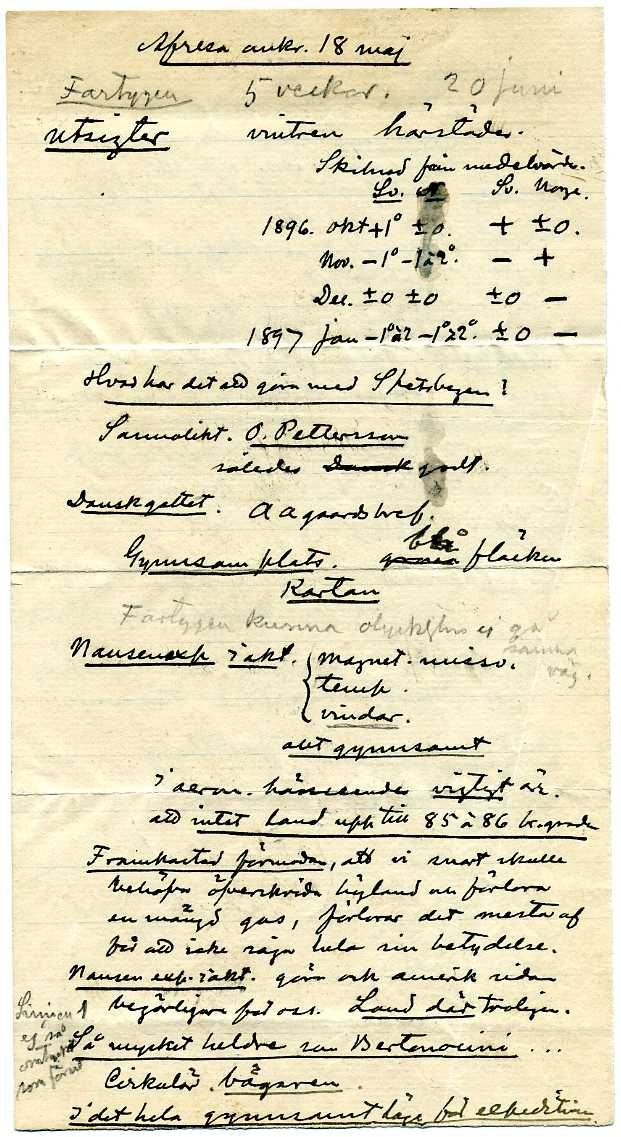 Afresa ankr. 18 maj
Fartygen 5 veckor. 20 juni
Utsigter vintren härstädes.
Skilnad från medelvärde.
Sv. N Sv. Norge.
1896. okt +1° ±0. + ±0.
Nov. –1° –1 à 2°. – +
Dec. ±0 ±0 ±0 –
1897 jan –1° à 2 –1° à 2°. ±0 –
Hvad har det att göra med Spetsbergen?
Sannolikt. O. Pettersson
således Dansk godt.
Danskgattet. Aagaards bref.
Gynnsam plats. blå fläcken
Kartan
Fartygen kunna ej gå
samma
väg.
Nansenexp. iakt. magnet. missv.
temp.
vindar.
allt gynnsamt
I aeron. hänseende vigtigt är.
att intet land upp till 85 à 86 br.grade
Framkastad förmodan, att vi snart skulle
behöfva öfverskrida högland och förlora
en mängd gas, förlorar det mesta af
för att icke säga hela sin betydelse.
Nansen exp. iakt. göra och amerik sidan
begärligare för oss. Land där troligen.
ej så
som förut
Så mycket heldre som
Cirkulär. bägaren.
I det hela gynnsamt läge för expedition.